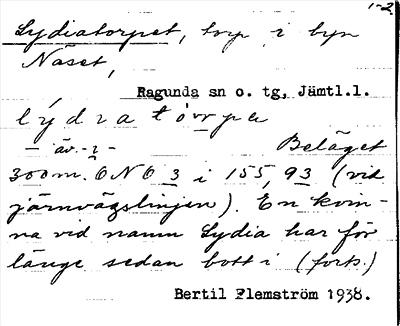 1-2
Lydiatorpet, torp i byn
Näset,
Ragunda sn o. tg, Jämtl.l.
lýdiatòrrpə
- äv. -ɿ -
Beläget
300m. ONO 3 i 155, 93 (vid
järnvägslinjen). En kvin-
na vid namn Lydia har för
länge sedan bott i (forts.)
Bertil Flemström 1938.